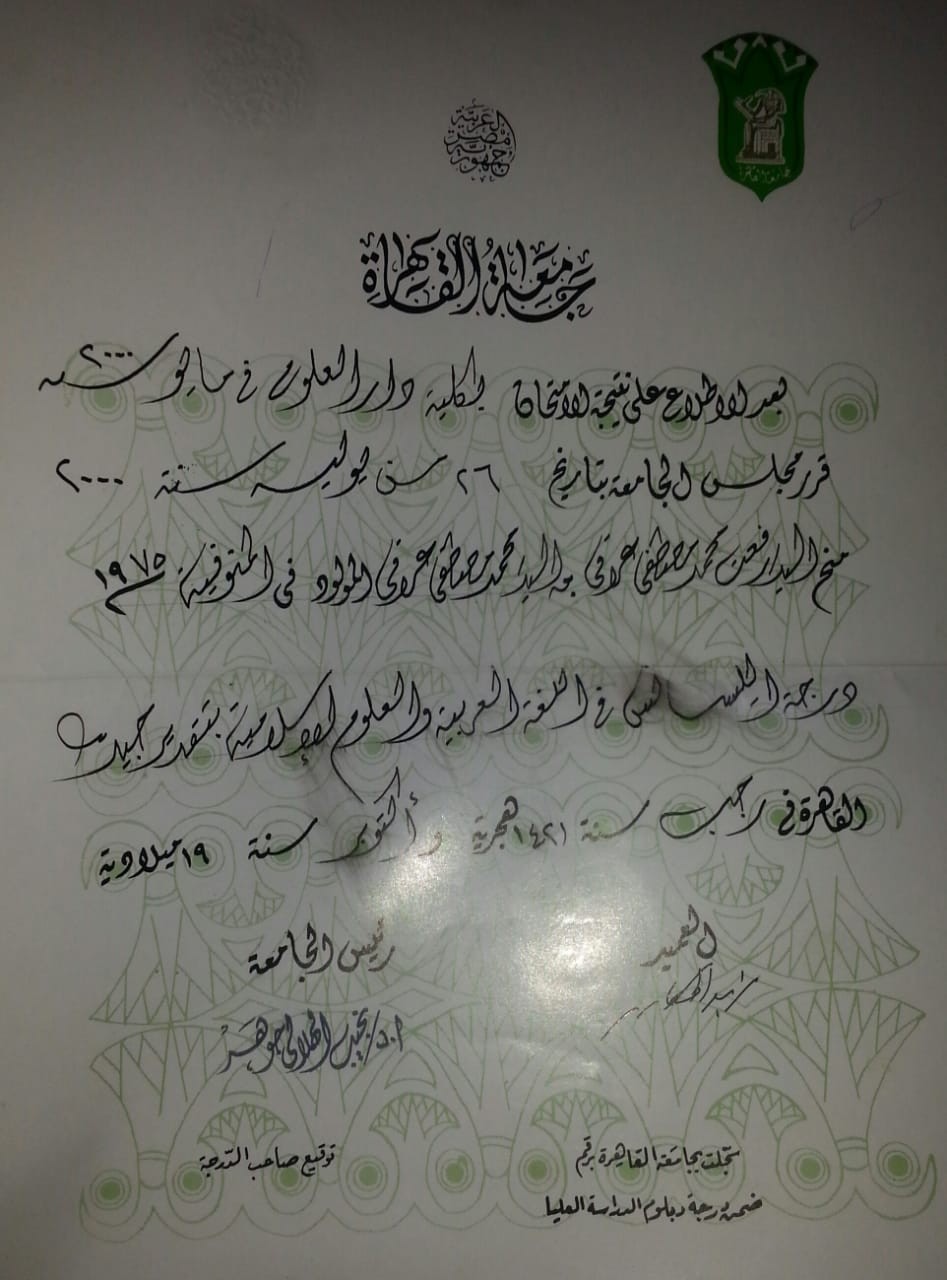 جمهورية مصر العربية
جامعة القاهرة
جامعة القاهرة
بعد الاطلاع على نتيجة الامتحان لكلية دار العلوم في مايو سنة ٢٠٠٠
قرر مجلس الجامعة بتاريخ ٢٦ من يوليه سنة ٢٠٠٠
منح السيد رفعت محمد مصطفى عراقي بن السيد محمد مصطفى عراقي المولود في المنوفية ١٩٧٥
درجة الليسانس في اللغة العربية والعلوم الإسلامية بتقدير جيد
القاهرة في رجب سنة ١٤٢١ هجرية و أكتوبر سنة ١٩ ميلادية
العميد
رئيس الجامعة
أ.د/ نجيب الهلالي جوهر
سجلت بجامعة القاهرة برقم
توقيع صاحب الدرجة
ضمن درجة دبلوم الدراسة العليا